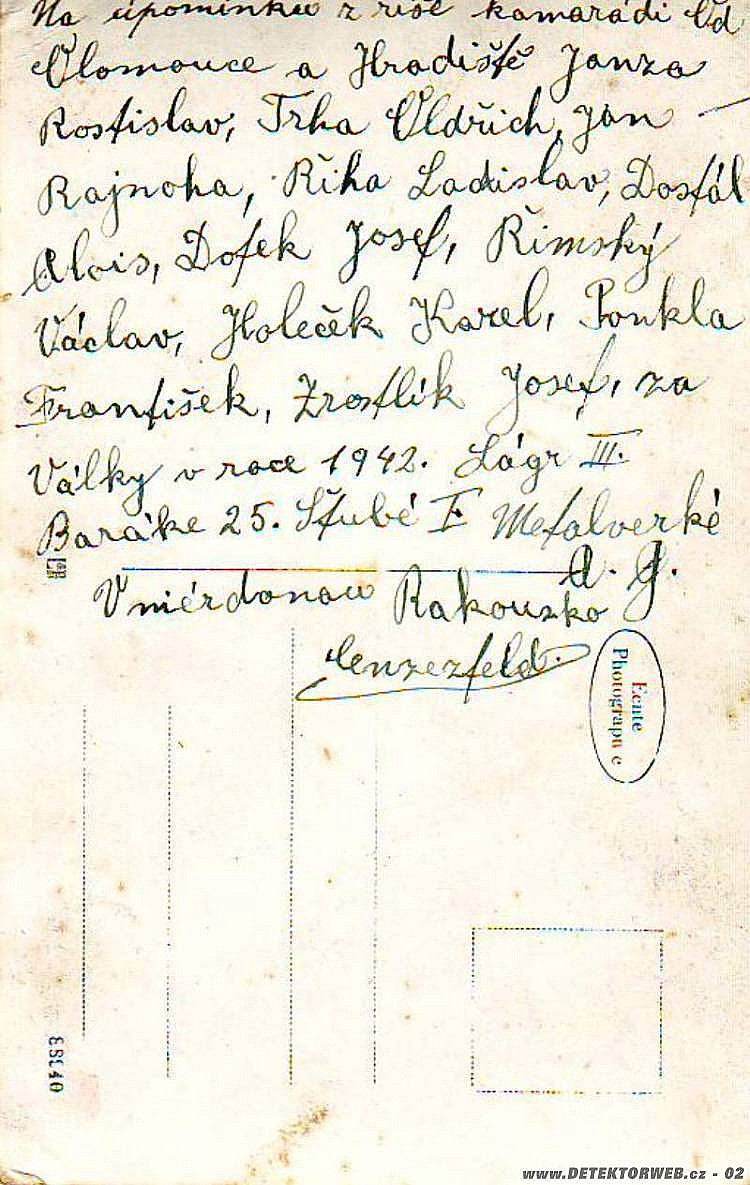 Na upomínku z říše kamarádi Od
Olomouce a Hradiště Janza
Rostislav, Trha Oldřich, Jan –
Rajnoha, Říha Ladislav, Dostál
Alois, Dofek Josef, Římský
Václav, Holeček Karel, Ponkla
František, Zrostlík Josef, za
Války v roce 1942. Lágr III.
Baráke 25. Štubé F Metalverké
A. G.
V niérdonau Rakouzko
Enzezfeld.
Echte
Photographie
www.DETEKTORWEB.cz - 02